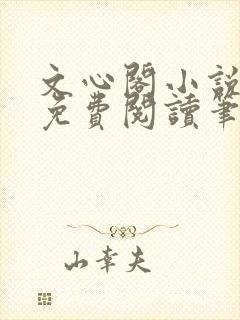 文心閣小說
免費閱讀筆
山幸夫